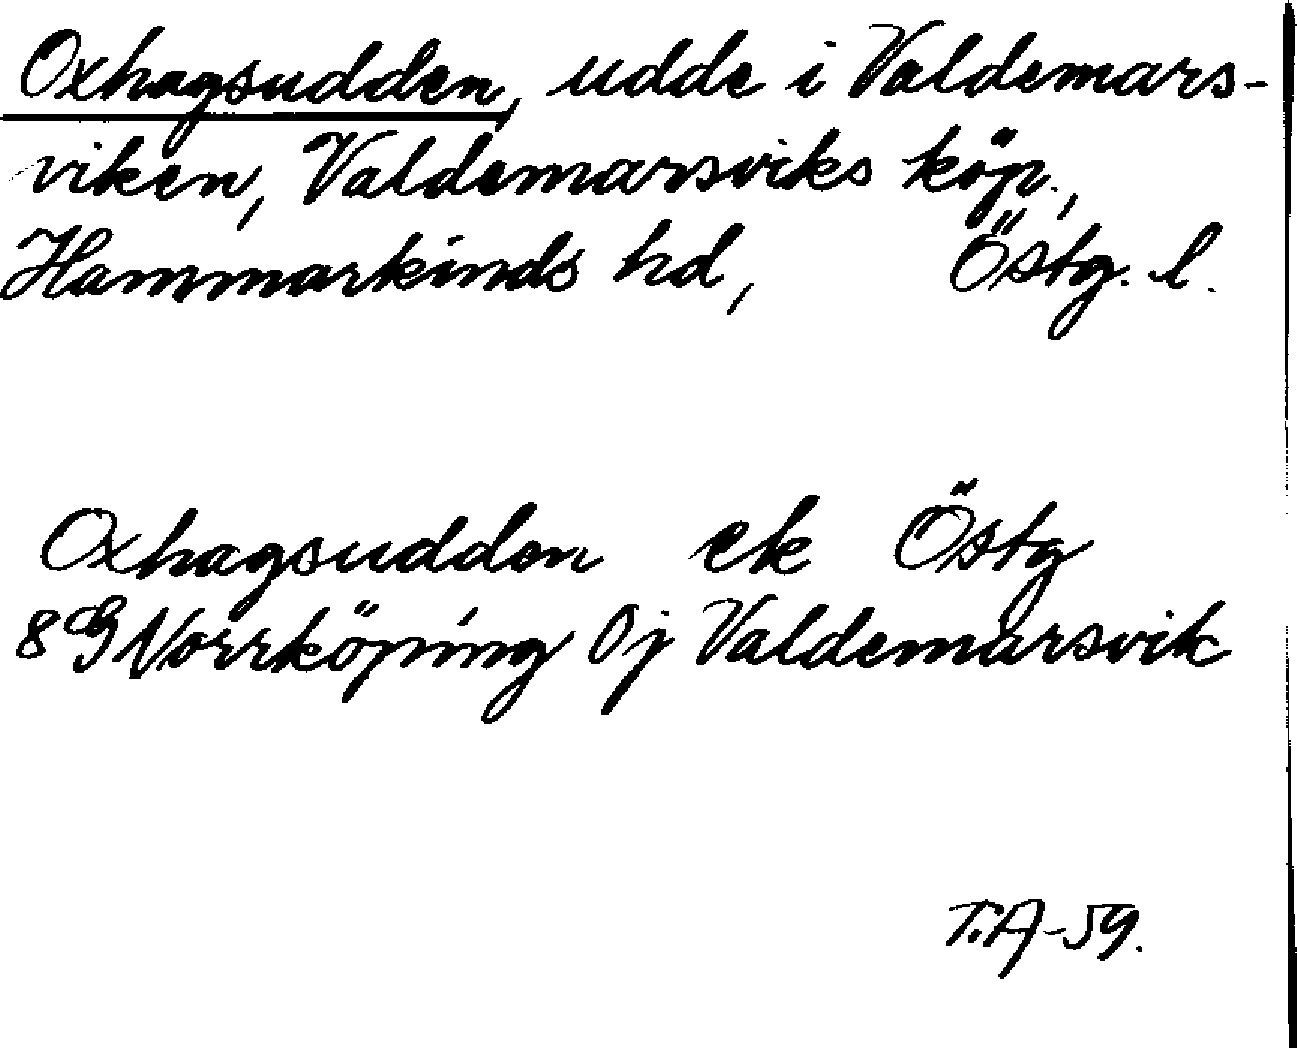 Oxhagsudden, udde i Valdemars-
viken, Valdemarsviks köp.,
Hammarkinds hd, Östg. l.
Oxhagsudden ek Östg
8G Norrköping 0j Valdemarsvik
T.A-59.